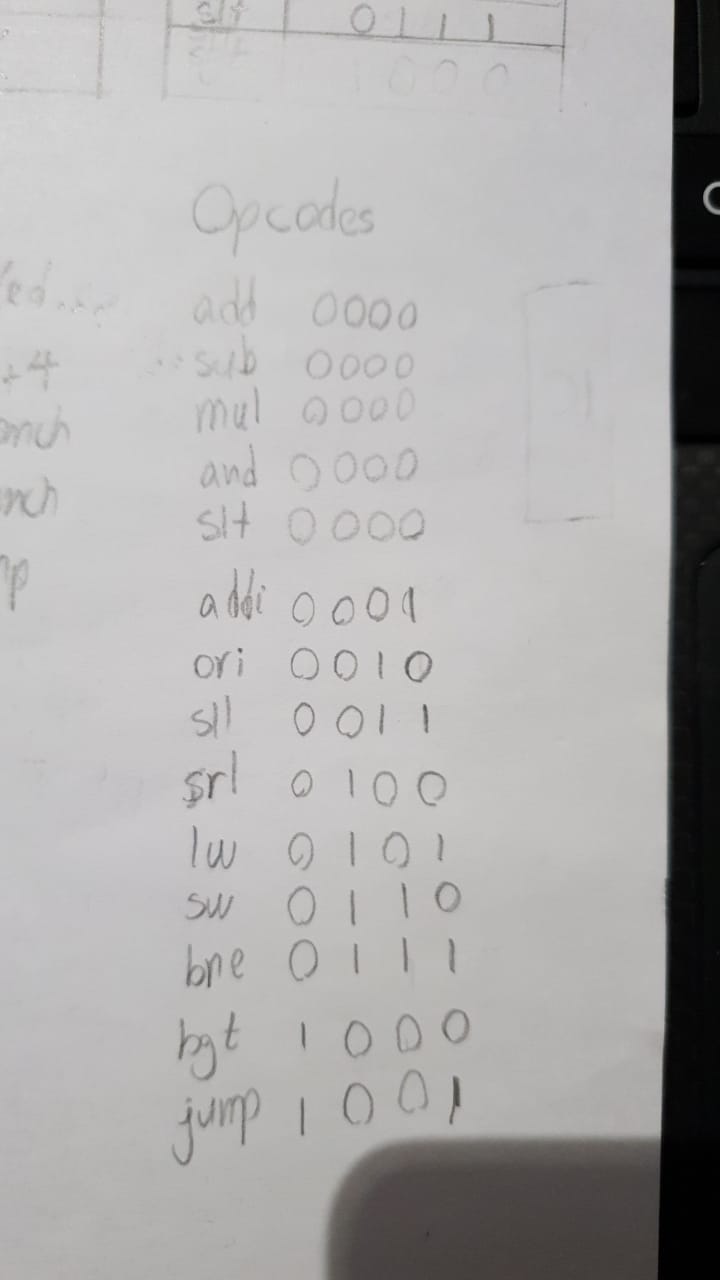 slt 0111
1000
Opcodes
add 0000
+4 sub 0000
mul 0000
and 0000
slt 0000
addi 0001
ori 0010
sll 0011
srl 0100
lw 0101
sw 0110
bne 0111
bgt 1000
jump 1001